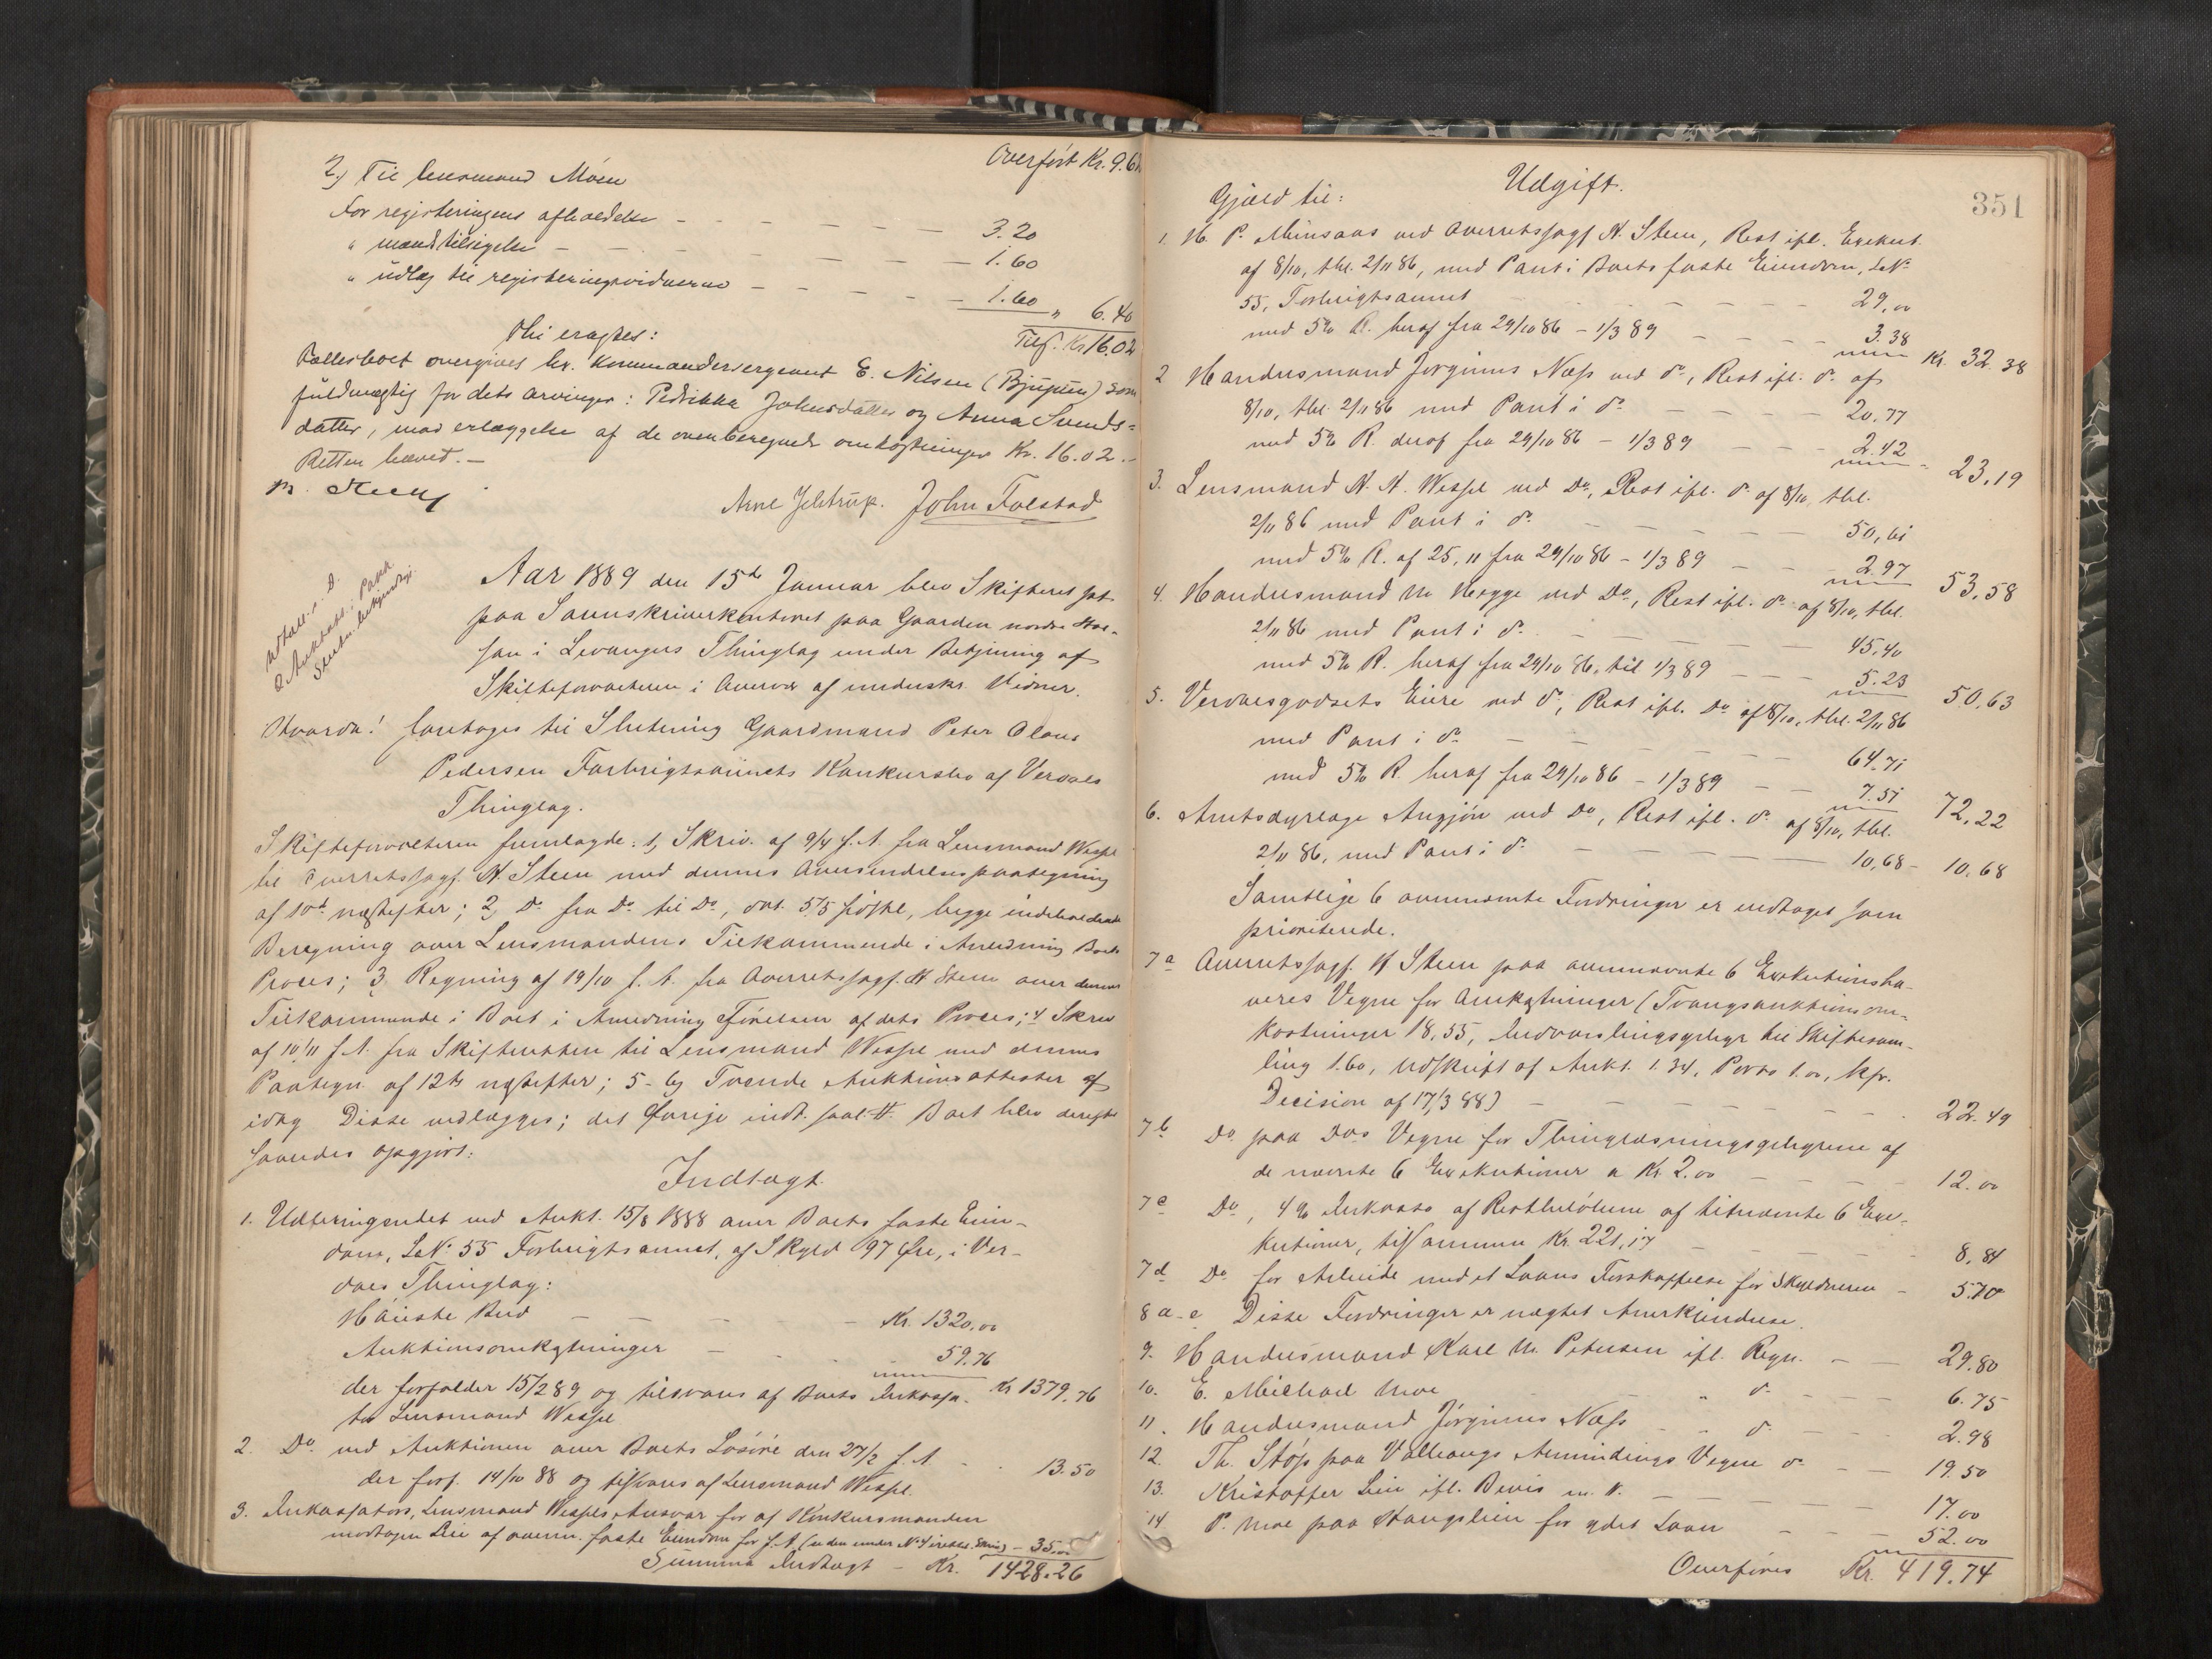 Overført Kr. 9.62
2) Til lensmand Moen
For registeringens afholdelse - - - - - - 3.20
" mandtilsigelse - - - - - - 1.60
" udlæg til registeringsvidnerne - - - - - 1.60 " 6.40
Tils. Kr 16.02
Thi eragtes:
Fællesboet overgives hr. kommandersergeant E. Nilsen (Bjugum) som
fuldmægtig for dets arvinger: Pedrikke Johnsdatter og Anna Svends=
datter, mod erlæggelse af de ovenberegnede omkostninger Kr. 16.02.-
Retten hævet.-
Arne Jelstrup. John Folstad
Udtall. s. D.
2 Auktsatt. i Pakk
Aar 1889 den 15de Januar blev Skifteret sat
paa Sorenskriverkontoret paa Gaarden nordre
i Levangers Thinglag under Betjening af
Skifteforvalteren i Overvær af underskr. Vidner.
Hvorda! foretoges til Slutning Gaardmand Peter Olaus
Pedersen Forbrigtsaunets Konkursbo af Verdals
Thinglag.
Skifteforvalteren fremlagde: 1, Skriv. af 9/4 f. A. fra Lensmand Wessel
til Overretssagf. N. Steen med dennes Oversendelsespaategning
af 10de næstefter; 2, Do fra Do til Do, dat. 5/5 sidstl, begge indeholdende
Beregning over Lensmandens Tilkommende i Anledning Boets
Proces; 3, Regning af 19/10 f. A. fra Overretssagf. N Steen over dennes
Tilkommende i Boet i Anledning Førelsen af dets Proces; 4 Skriv
af 10/11 f. A. fra Skifteretten til Lensmand Wessel med dennes
Paategn. af 12te næstefter; 5-6, Tvende Auktionsattester af
idag Disse vedlægges; det Øvrige indt. saal. Boet blev derefter
saaledes opgjort:
Indtægt
1. Udbringendet ved Aukt. 15/8 1888 over Boets faste Eien-
dom, LN: 55 Forbrigtsaunet, af Skyld 97 Øre, i Ver-
dals Thinglag:
Høieste Bud - - - - - Kr. 1320,00
Auktionsomkostninger - - - 59.76
der forfalder 15/2 89 og tilsvares af Boets Inkassa- Kr 1379,76
tor Lensmand Wessel
2. Do ved Auktionen over Boets Løsøre den 27/2 f. A - - 13.50
der forf. 14/10 88 og tilsvares af Lensmand Wessel.
3. Inkassators, Lensmand Wessels Ansvar for af Konkursmanden
modtagen Leie af ovenn. faste Eiendom for f. A - 35,00
Summa Indtægt - Kr. 1428.26
351
Udgift.
Gjæld til:
1. H. P. Minsaas ved Overretssagf N. Steen, Rest ifl. Exekut.
af 8/10, thl. 2/11 86, med Pant i Boets faste Eiendom, LN:
55, Forbrigtsaunet - - - - 29,00
med 5% R. heraf fra 29/10 86 - 1/3 89 - - - - 3.38 Kr. 32.38
2 Handelsmand Jørginus Næss ved do, Rest ifl. do af
8/10, thl. 2/11 86 med Pant i do - - - - 20.77
med 5% R. deraf fra 29/10 86 - 1/3 89 - - - 2.42 - 23,19
3. Lensmand N. N. Wessel ved Do, Rest ifl. do af 8/10, thl.
2/11 86 med Pant i do - - - - 50,61
med 5% R. af 25,11 fra 29/10 86 - 1/3 89 - - - 2.97 53,58
4. Handelsmand M. Hegge ved Do, Rest ifl. do af 8/10, thl.
2/11 86 med Pant i do - - - - 45,40
med 5% R. heraf fra 29/10 86, til 1/3 89 - - - 5.23 50,63
5. Verdalsgodsets Eiere ved do, Rest ifl. Do af 8/10, thl. 2/11 86
med Pant i do - - - - 64.71
med 5% R. heraf fra 29/10 86 - 1/3 89 - - 7.51 72,22
6. Amtsdyrlæge Ansjøn ved Do, Rest ifl. do af 8/10, thl.
2/11 86, med Pant i do - - - - 10,68 - 10.68
Samtlige 6 ovennævnte Fordringer er vedtaget som
prioriterede.
7a Overretssagf. N Steen paa ovennævnte 6 Exekutionsha-
veres Vegne for Omkostninger (Tvangsauktionsom-
kostninger 18,55, Indvarslingsgebyr til Skiftesam-
ling 1.60, Udskrift af Aukt. 1.34, Porto 1.00, kfr.
Decision af 17/3 88) - - - - 22.49
7b Do paa Dos Vegne for Thinglæsningsgebyrene af
de nævnte 6 Exekutioner a Kr. 2.00 - - - - 12.00
7c Do, 4% Inkasso af Restbeløbene af bemeldte 6 Exe-
kutioner, tilsammen Kr. 221,17 - - - - 8,84
7d Do for Arbeide med et Laans Forskaffelse for Skyldneren - 5.70
8 a-e Disse Fordringer er nægtet Anerkjendelse.
9. Handelsmand Karl M. Petersen ifl. Regn. - - 29.80
10. E. Michael Moe " do - - - 6.75
11. Handelsmand Jørginus Næss - - do - - 2.98
12. Th. Støp paa Vollhaugs Almindings Vegne do - - 19.50
13. Kristoffer Lein ifl. Bevis m. V. - - - - 17.00
14 P. Moe paa Haugslien for ydet Laan - - - 52.00
Overføres Kr. 419.74